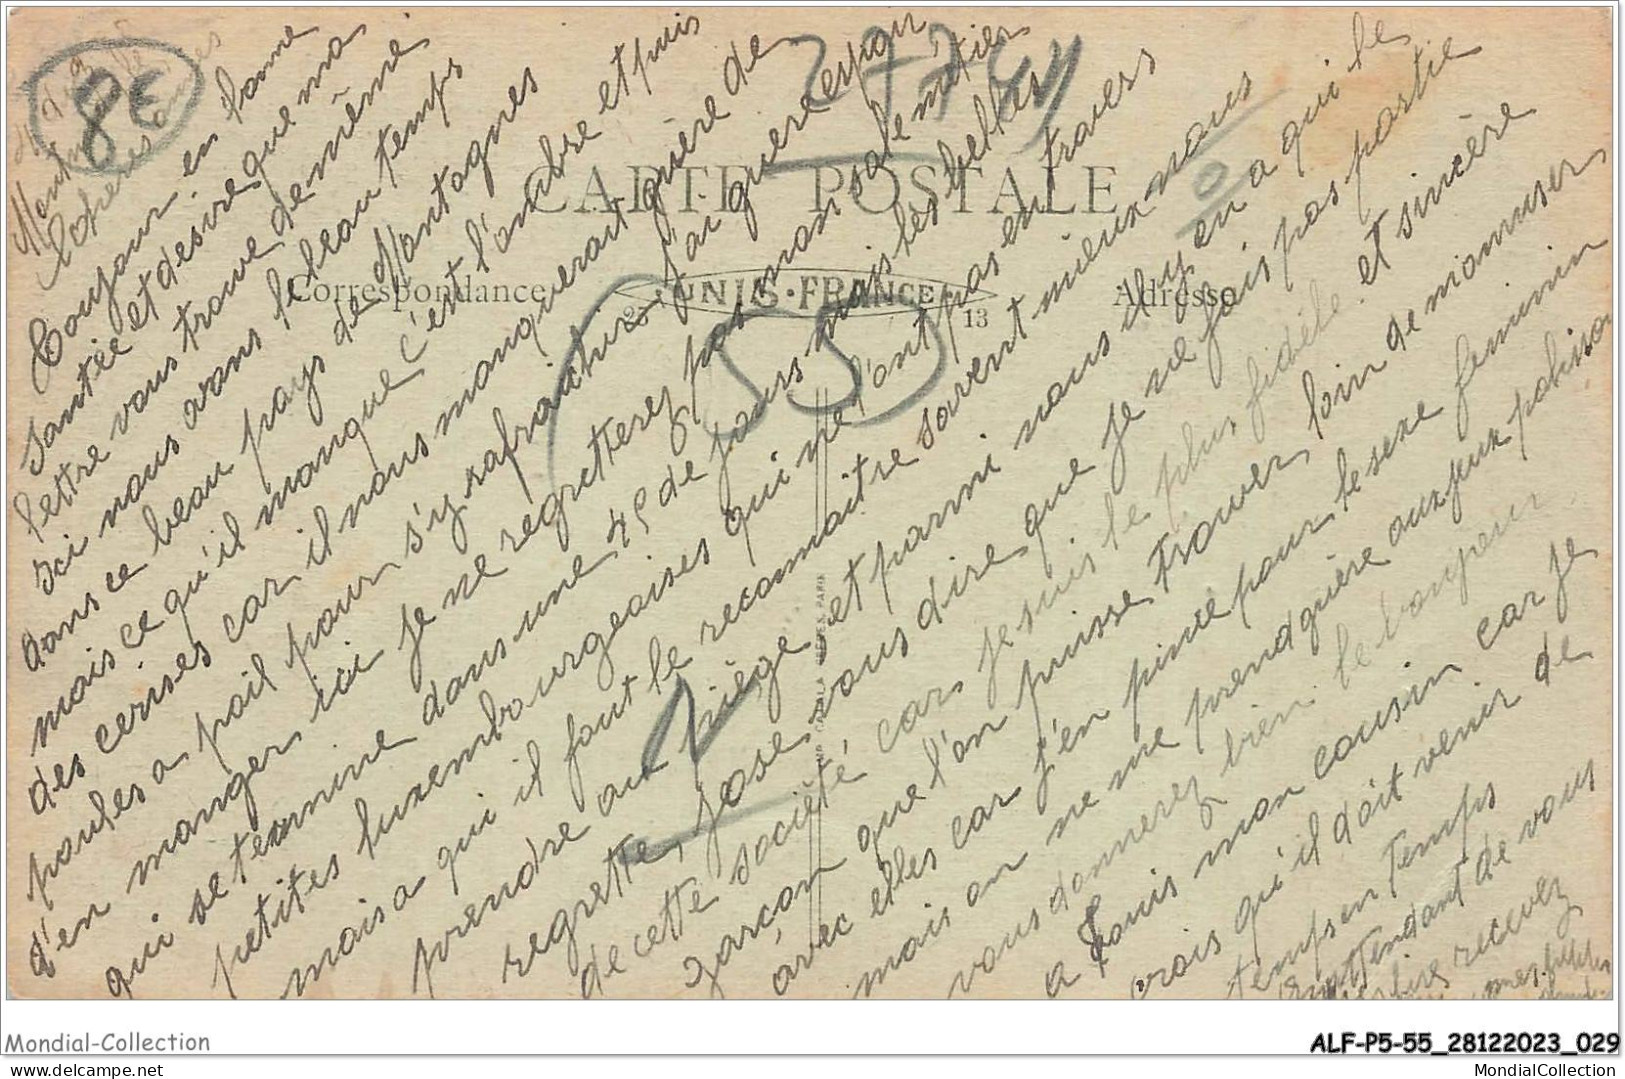 8€
277 54
CARTE POSTALE
Correspondance
UNIS-FRANCE
25
13
Adresse
55
Chères
Toujour en bonne
Santée et desire que ma
lettre vous trouve de même
Ici nous avons le beau temps
dans ce beau pays de Montagnes
mais ce qu'il manque c'est l'ombre et puis
des cerises car il nous manquerait guère de
poules a poil pour s'y rafraichir. J'ai guère espoir
d'en manger ici je ne regretterez pas mon sale métier
qui se termine dans une 45 de jours mais les belles
petites luxembourgeoises qui ne l'ont pas en travers
mais a qui il faut le reconnaitre savent mieux nous
prendre au piège et parmi nous il y en a qui les
regrette, j'ose vous dire que je ne fais pas partie
de cette société car je suis le plus fidèle et sincère
garçon que l'on puisse trouver loin de m'amuser
avec elles car j'en pince pour le sexe feminin
mais on ne me prend guère aux jeux polisson
vous donnerez bien le bonjour
a Louis mon cousin car je
crois qu'il doit venir de
temps en temps
En attendant de vous
lire recevez
mes
Mondial-Collection
ALF-P5-55_28122023_029
delcampe.net
MondialCollection